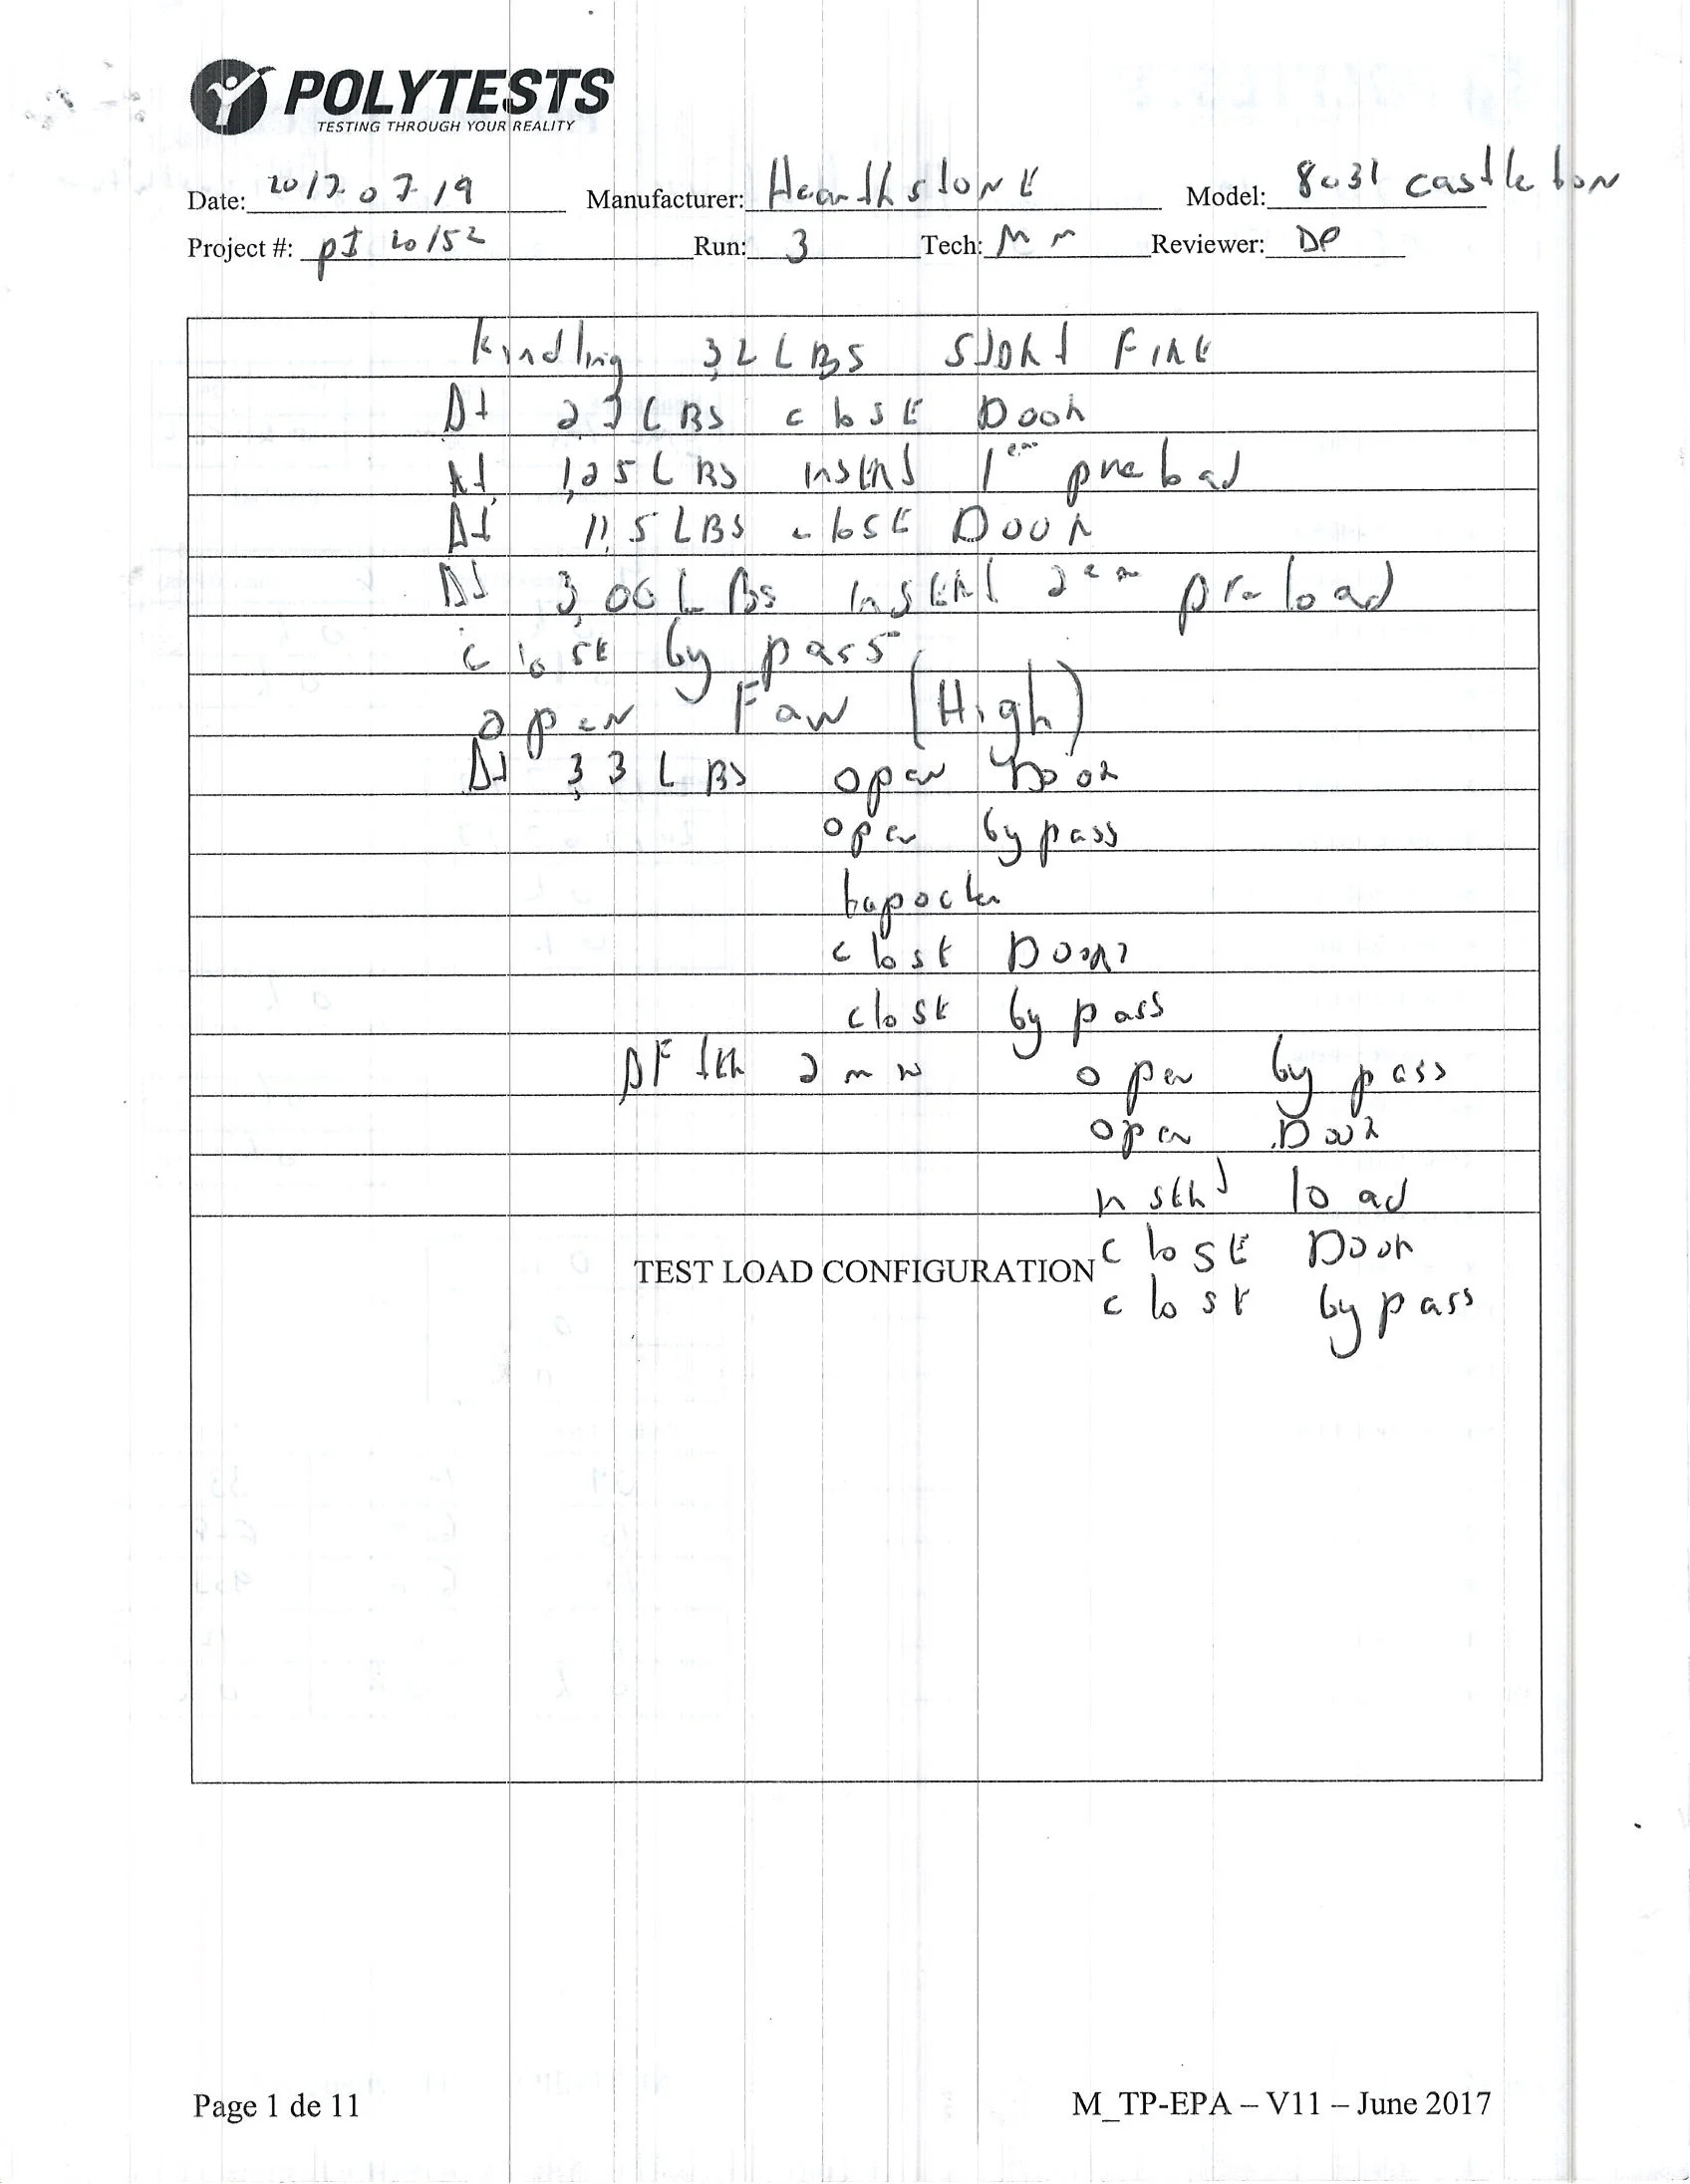 POLYTESTS
TESTING THROUGH YOUR REALITY
Date: 2017 07 19 Manufacturer: HearthstonE Model: 8031 castleton
Project #: pI 20152 Run: 3 Tech: MM Reviewer: DP
kindling 3,2 LBS stArt FirE
At LBS closE Door
At 1,25 LBS insErt 1em preload
At 11,5 LBS closE Door
At 3,00 LBS insErt 2em preload
closE by pass
open Fan (High)
At 3,3 LBS open Door
open by pass
closE Door
closE by pass
AFtEr 2 mn open by pass
open Door
insErt load
closE Door
TEST LOAD CONFIGURATION
closE by pass
Page 1 de 11 M_TP-EPA – V11 – June 2017